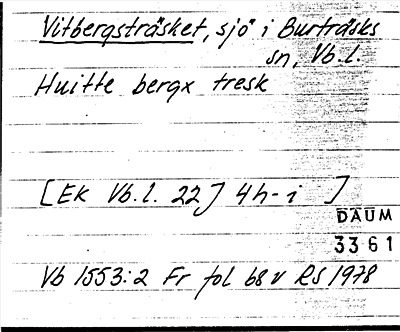 Vitbergsträsket, sjö i Burträsks
sn, Vb.l.
Huitte bergx tresk
[Ek Vb.l. 22J 4h-i ]
DAUM
3361
Vb 1553:2 Fr fol 68v RS 1978